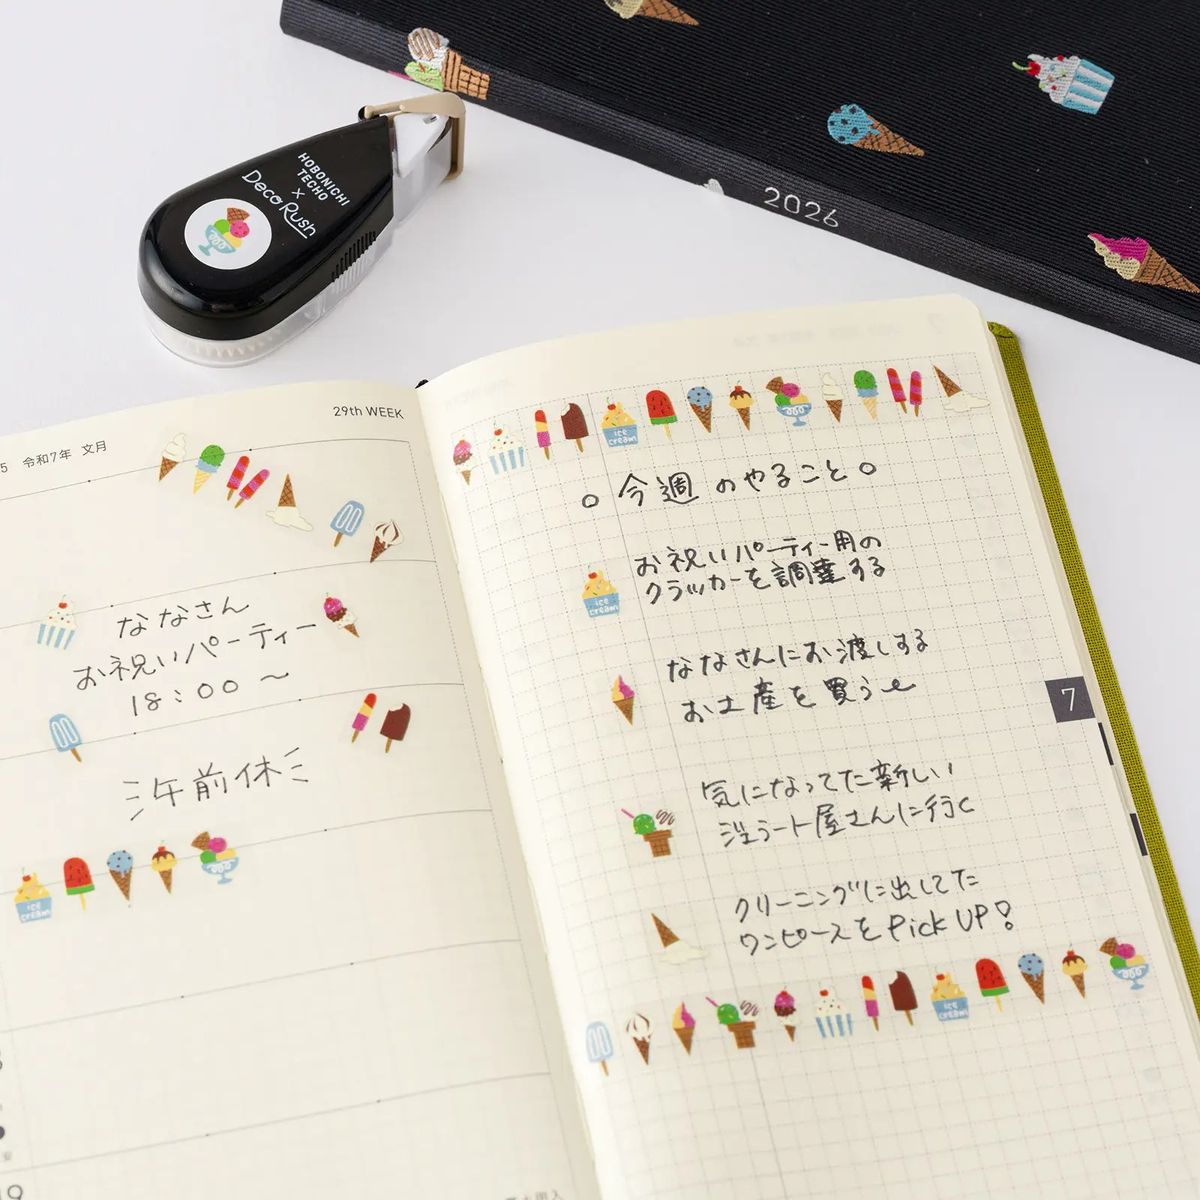 2026
HOBONICHI
TECHO
×
Deco Rush
5 令和7年 文月
29th WEEK
ななさん
お祝いパーティー
18:00〜
午前休
今週のやること
お祝いパーティー用の
クラッカーを調達する
ななさんにお渡しする
お土産を買う
気になってた新しい
ジェラート屋さんに行く
クリーニングに出してた
ワンピースをPick UP!
7
ice
cream
ice
cream
ice
cream
ice
cream